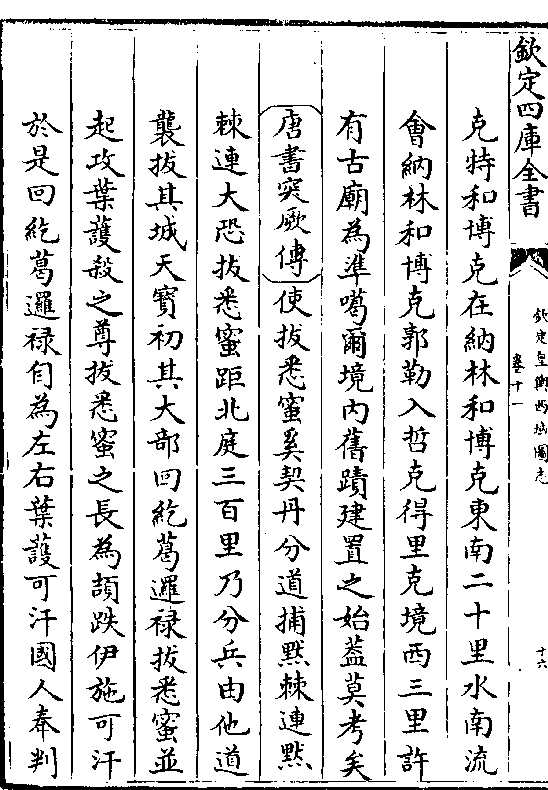 欽定四庫全書
欽定皇輿西域圖志
卷十一
十六
克特和博克在納林和博克東南二十里水南流
會納林和博克郭勒入哲克得里克境西三里許
有古廟為準噶爾境内舊蹟建置之始葢莫考矣
唐書突厥傳使拔悉蜜奚契丹分道捕黙棘連黙
棘連大恐拔悉蜜距北庭三百里乃分兵由他道
襲拔其城天寳初其大部回紇葛邏禄拔悉蜜並
起攻葉䕶殺之尊拔悉蜜之長為頡跌伊施可汗
於是回紇葛邏禄自為左右葉䕶可汗國人奉判